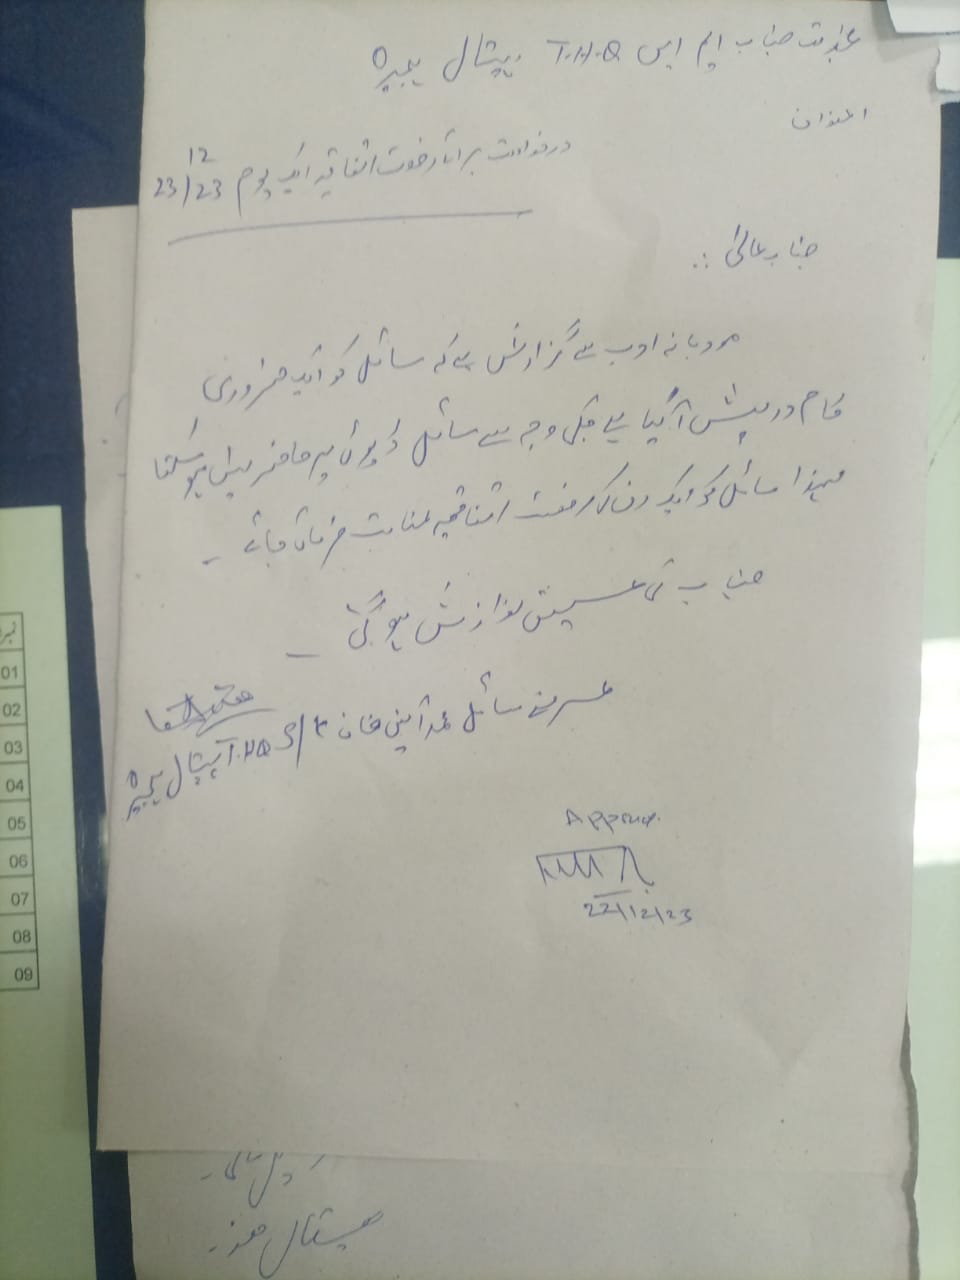 بخدمت جناب ایم ایس T.H.Q ہسپتال
عنوان
درخواست برائے رخصت اتفاقیہ ایک یوم 23/12/23
جناب عالی :.
مودبانہ ادب سے گزارش ہے کہ سائل کو ایک ضروری
کام درپیش آ گیا ہے جسکی وجہ سے سائل ڈیوٹی پر حاضر نہیں ہو سکتا
لہذا سائل کو ایک دن کا رخصت اتفاقیہ عنایت فرمائی جائے ۔
جناب کی عین نوازش ہو گی ۔
عرضے سائل خان S/K T.H.Q ہسپتال
Approve.
22/12/23
ہسپتال ھذا۔
نمبر
01
02
03
04
05
06
07
08
09